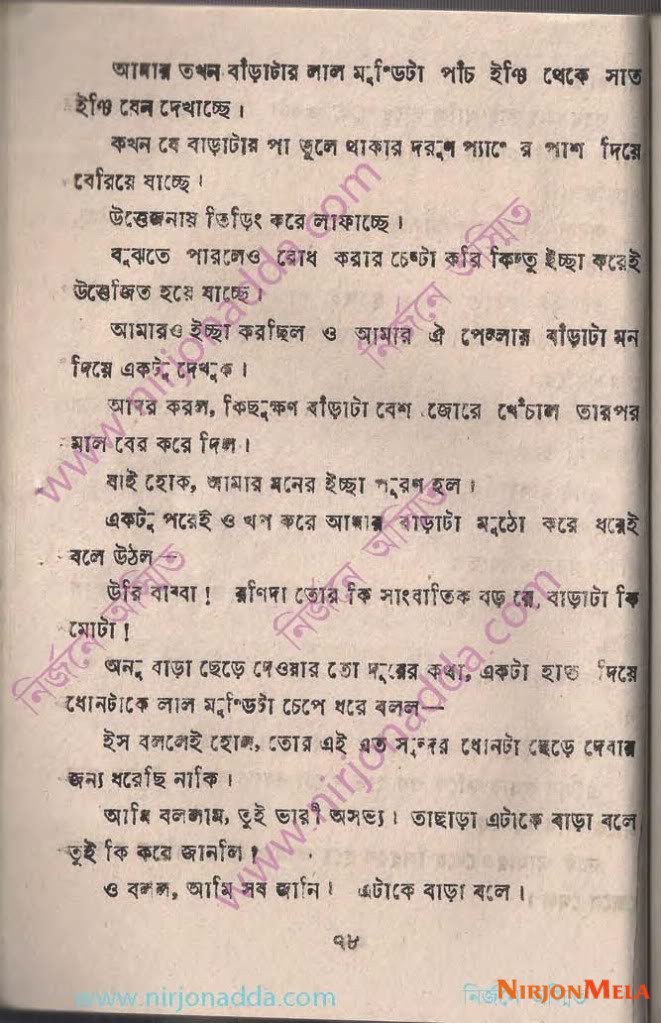 আমার তখন বাঁড়াটার লাল মুণ্ডিটা পাঁচ ইঞ্চি থেকে সাত
ইঞ্চি যেন দেখাচ্ছে।
কখন যে বাড়াটার পা তুলে থাকার দরুণ প্যান্টের পাশ দিয়ে
বেরিয়ে যাচ্ছে।
উত্তেজনায় তিড়িং করে লাফাচ্ছে।
বুঝতে পারলেও রোধ করার চেষ্টা করি কিন্তু ইচ্ছা করেই
উত্তেজিত হয়ে যাচ্ছে।
আমারও ইচ্ছা করছিল ও আমার ঐ পেল্লায় বাঁড়াটা মন
দিয়ে একটু দেখুক।
আদর করল, কিছুক্ষণ বাঁড়াটা বেশ জোরে খেঁচাল তারপর
মাল বের করে দিল।
যাই হোক, আমার মনের ইচ্ছা পূরণ হল।
একটু পরেই ও খপ করে আমার বাড়াটা মুঠো করে ধরেই
বলে উঠল—
উরি বাব্বা! রণিদা তোর কি সাংঘাতিক বড় রে, বাড়াটা কি
মোটা!
অনু বাড়া ছেড়ে দেওয়ার তো দূরের কথা, একটা হাত দিয়ে
ধোনটাকে লাল মুণ্ডিটা চেপে ধরে বলল—
ইস বললেই হোল, তোর এই এত সুন্দর ধোনটা ছেড়ে দেবার
জন্য ধরেছি নাকি।
আমি বললাম, তুই ভারী অসভ্য। তাছাড়া এটাকে বাড়া বলে
তুই কি করে জানলি!
ও বলল, আমি সব জানি। এটাকে বাড়া বলে।
৭৮
www.nirjonadda.com
নির্জনে
NIRJONMELA
www.nirjonadda.com
www.nirjonadda.com